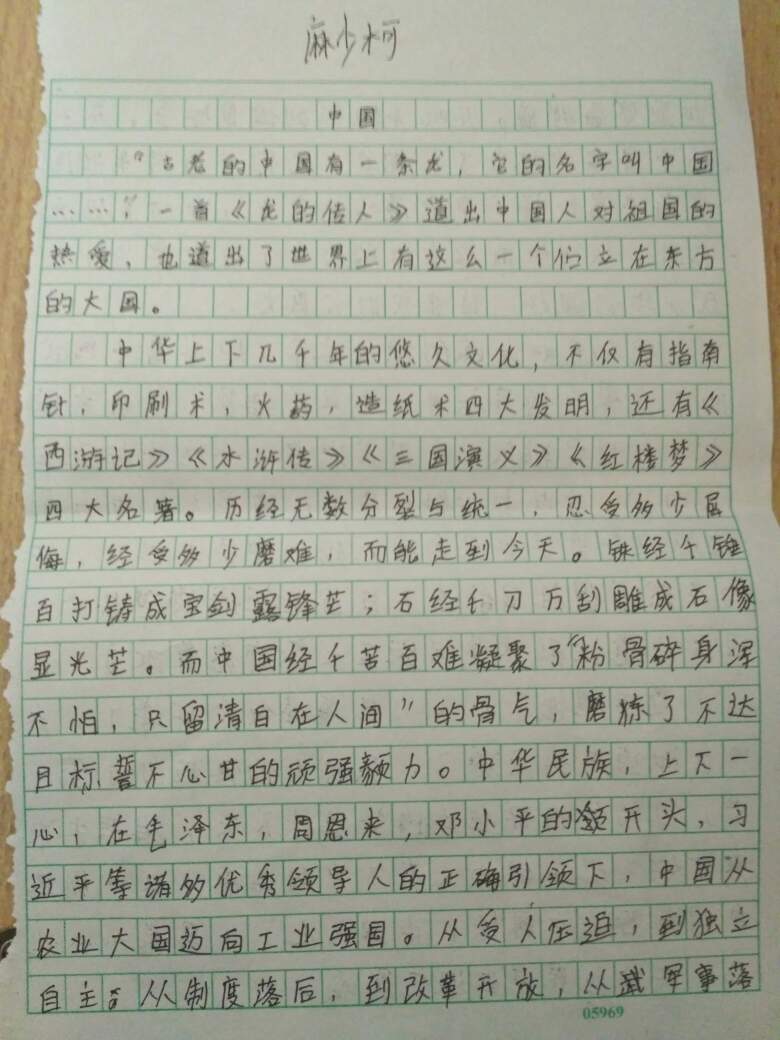 麻少柯
中国
“古老的中国有一条龙，它的名字叫中国
……，一首《龙的传人》道出中国人对祖国的
热爱，也道出了世界上有这么一个伫立在东方
的大国。
中华上下几千年的悠久文化，不仅有指南
针，印刷术，火药，造纸术四大发明，还有《
西游记》《水浒传》《三国演义》《红楼梦》
四大名著。历经无数分裂与统一，忍受多少屈
侮，经受多少磨难，而能走到今天。铁经千锤
百打铸成宝剑露锋芒；石经千刀万刮雕成石像
显光芒。而中国经千苦百难凝聚了“粉骨碎身浑
不怕，只留清白在人间”的骨气，磨炼了不达
目标誓不心甘的顽强毅力。中华民族，上下一
心，在毛泽东，周恩来，邓小平的领开头，习
近平等诸多优秀领导人的正确引领下，中国从
农业大国迈向工业强国。从受人压迫，到独立
自主。从制度落后，到改革开放，从军事落
05969